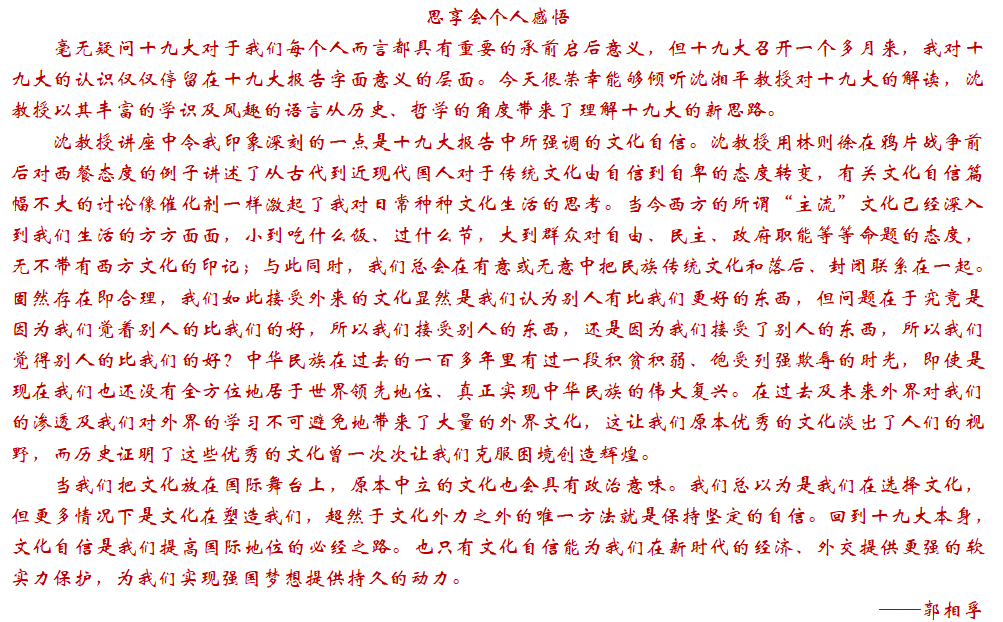 思享会个人感悟
毫无疑问十九大对于我们每个人而言都具有重要的承前启后意义，但十九大召开一个多月来，我对十
九大的认识仅仅停留在十九大报告字面意义的层面。今天很荣幸能够倾听沈湘平教授对十九大的解读，沈
教授以其丰富的学识及风趣的语言从历史、哲学的角度带来了理解十九大的新思路。
沈教授讲座中令我印象深刻的一点是十九大报告中所强调的文化自信。沈教授用林则徐在鸦片战争前
后对西餐态度的例子讲述了从古代到近现代国人对于传统文化由自信到自卑的态度转变，有关文化自信篇
幅不大的讨论像催化剂一样激起了我对日常种种文化生活的思考。当今西方的所谓“主流”文化已经深入
到我们生活的方方面面，小到吃什么饭、过什么节，大到群众对自由、民主、政府职能等等命题的态度，
无不带有西方文化的印记；与此同时，我们总会在有意或无意中把民族传统文化和落后、封闭联系在一起。
固然存在即合理，我们如此接受外来的文化显然是我们认为别人有比我们更好的东西，但问题在于究竟是
因为我们觉着别人的比我们的好，所以我们接受别人的东西，还是因为我们接受了别人的东西，所以我们
觉得别人的比我们的好？中华民族在过去的一百多年里有过一段积贫积弱、饱受列强欺辱的时光，即使是
现在我们也还没有全方位地居于世界领先地位、真正实现中华民族的伟大复兴。在过去及未来外界对我们
的渗透及我们对外界的学习不可避免地带来了大量的外界文化，这让我们原本优秀的文化淡出了人们的视
野，而历史证明了这些优秀的文化曾一次次让我们克服困境创造辉煌。
当我们把文化放在国际舞台上，原本中立的文化也会具有政治意味。我们总以为是我们在选择文化，
但更多情况下是文化在塑造我们，超然于文化外力之外的唯一方法就是保持坚定的自信。回到十九大本身，
文化自信是我们提高国际地位的必经之路。也只有文化自信能为我们在新时代的经济、外交提供更强的软
实力保护，为我们实现强国梦想提供持久的动力。
——郭相孚